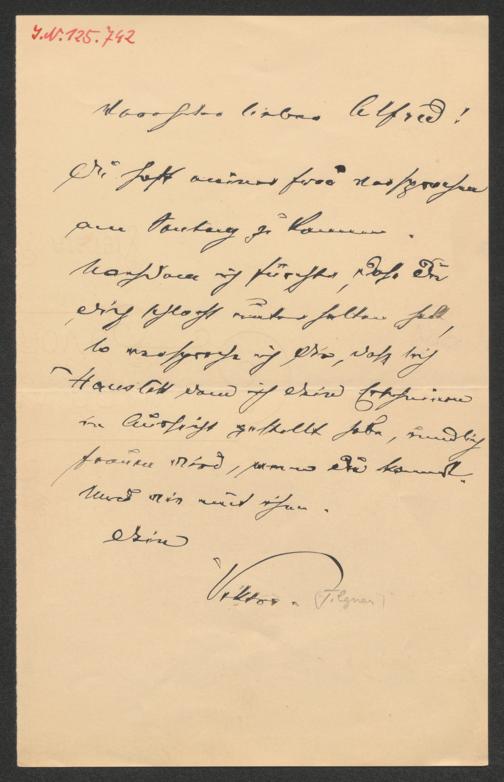 J.N. 125.742
lieber Alfred!
Du hast meiner Frau versprochen
am Sontag zu kommen.
Nachdem ich fürchte, dass Du
Dich schlecht unterhalten hast,
so verspreche ich Dir, dass sich
dem ich Dein Erscheinen
in Aussicht gestellt habe, riesig
freuen wird, wenn Du kommst.
Und wir mit ihm.
Dein
Viktor. (Tilgner)